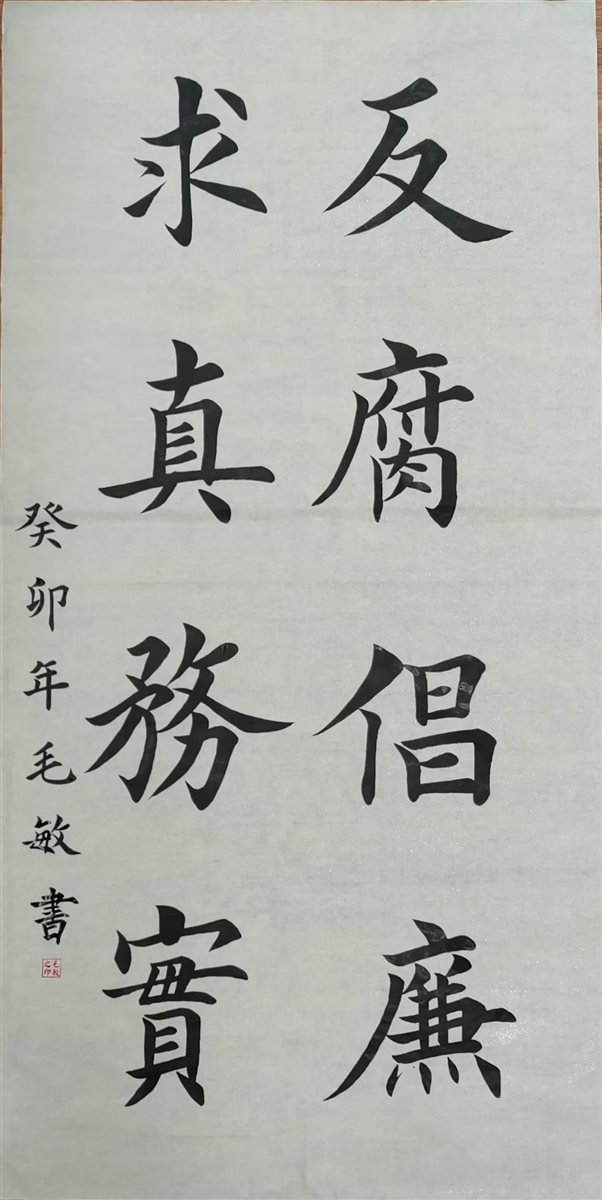 反腐倡廉
求真務實
癸卯年毛敏書
毛敏之印